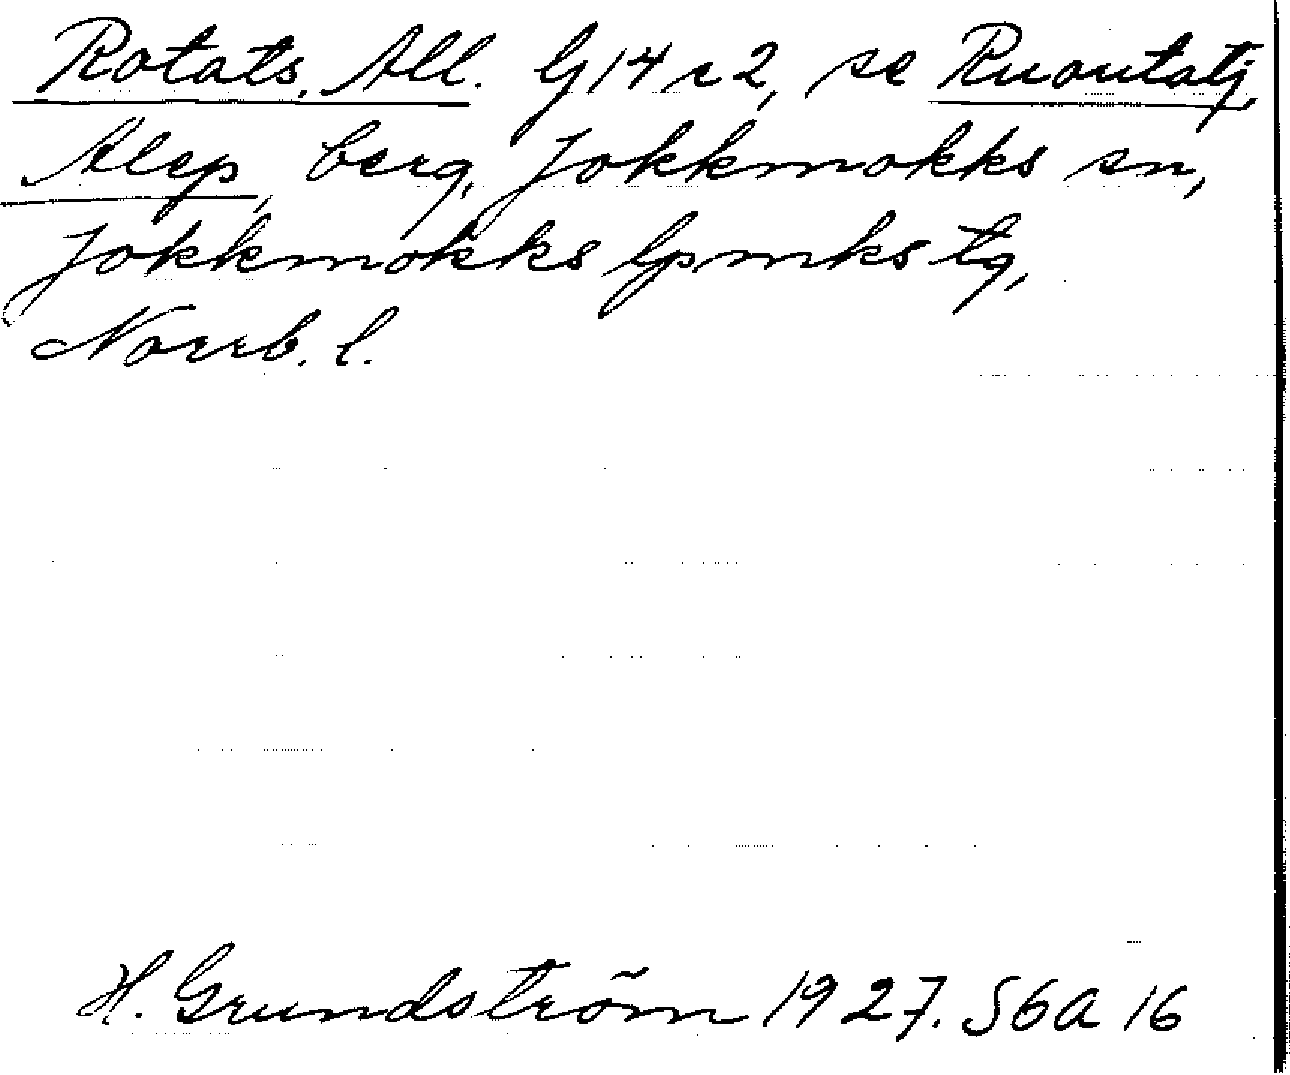 Rotats, All. G14 r2, se Ruoutatj
Alep, berg, Jokkmokks sn,
Jokkmokks lpmks tg,
Norrb. l.
H. Grundström 1927. S6a 16